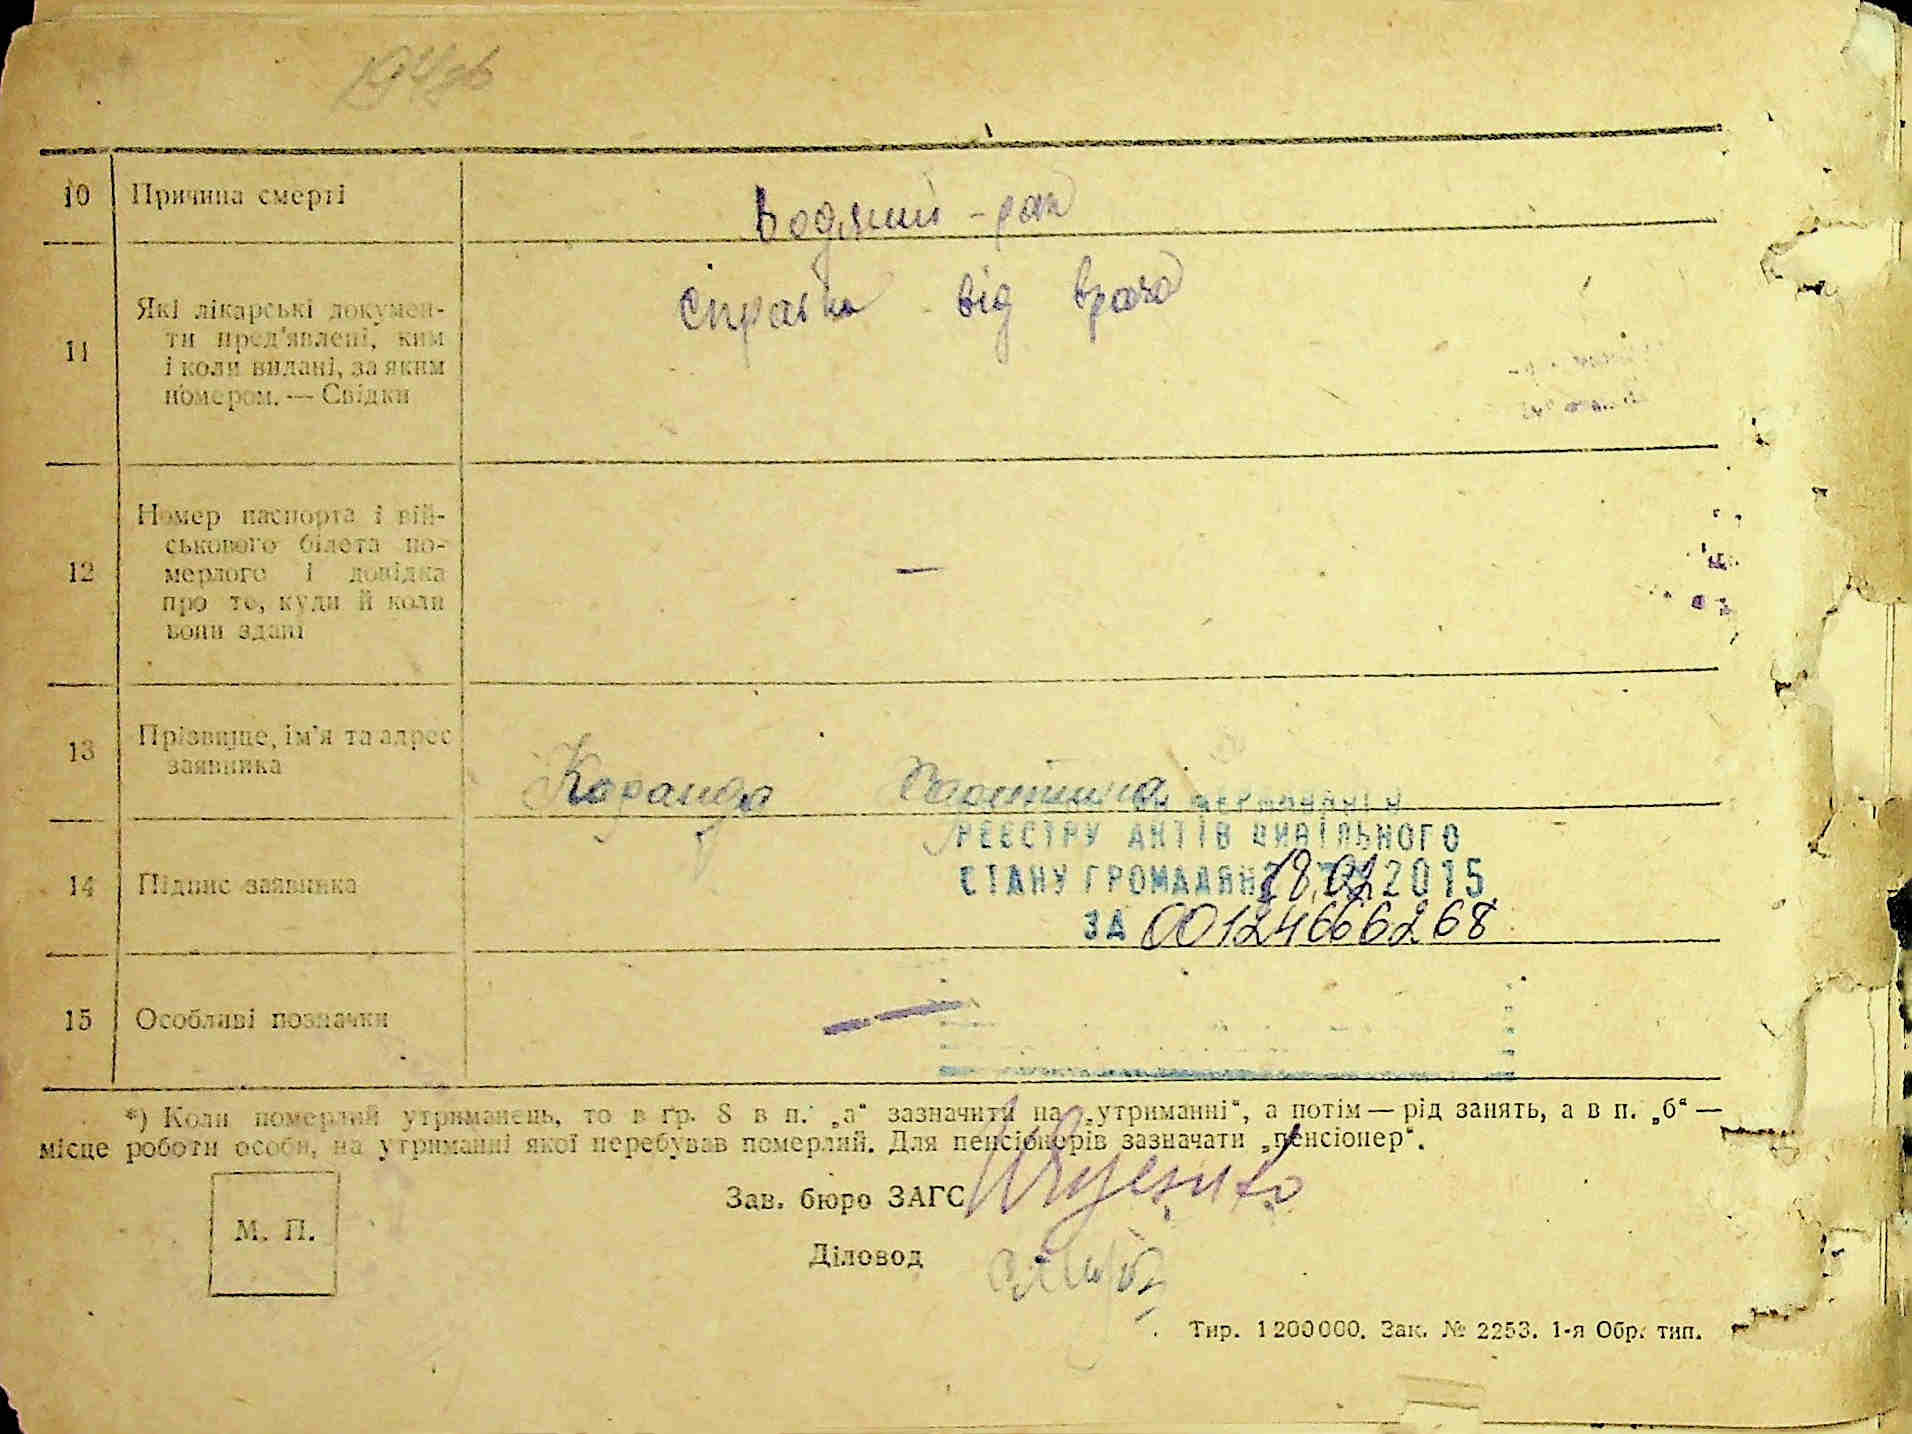 10 Причина смерті Водяний - рак
11 Які лікарські докумен-
ти пред'явлені, ким
і коли видані, за яким
номером. — Свідки
Справка від врача
12 Номер паспорта і вій-
ськового білета по-
мерлого і довідка
про те, куди й коли
вони здані
—
13 Прізвище, ім'я та адрес
заявника
ДЕРЖАВНОГО
РЕЕСТРУ АКТІВ ЦИВІЛЬНОГО
14 Підпис заявника
СТАНУ ГРОМАДЯН 2015
ЗА 00124666268
15 Особливі позначки —
*) Коли померлий утриманець, то в гр. 8 в п. „а" зазначити на „утриманні", а потім — рід занять, а в п. „б" —
місце роботи особи, на утриманні якої перебував померлий. Для пенсіонерів зазначати „пенсіонер".
М. П.
Зав. бюро ЗАГС
Діловод
Тир. 1200000. Зак. № 2253. 1-я Обр. тип.